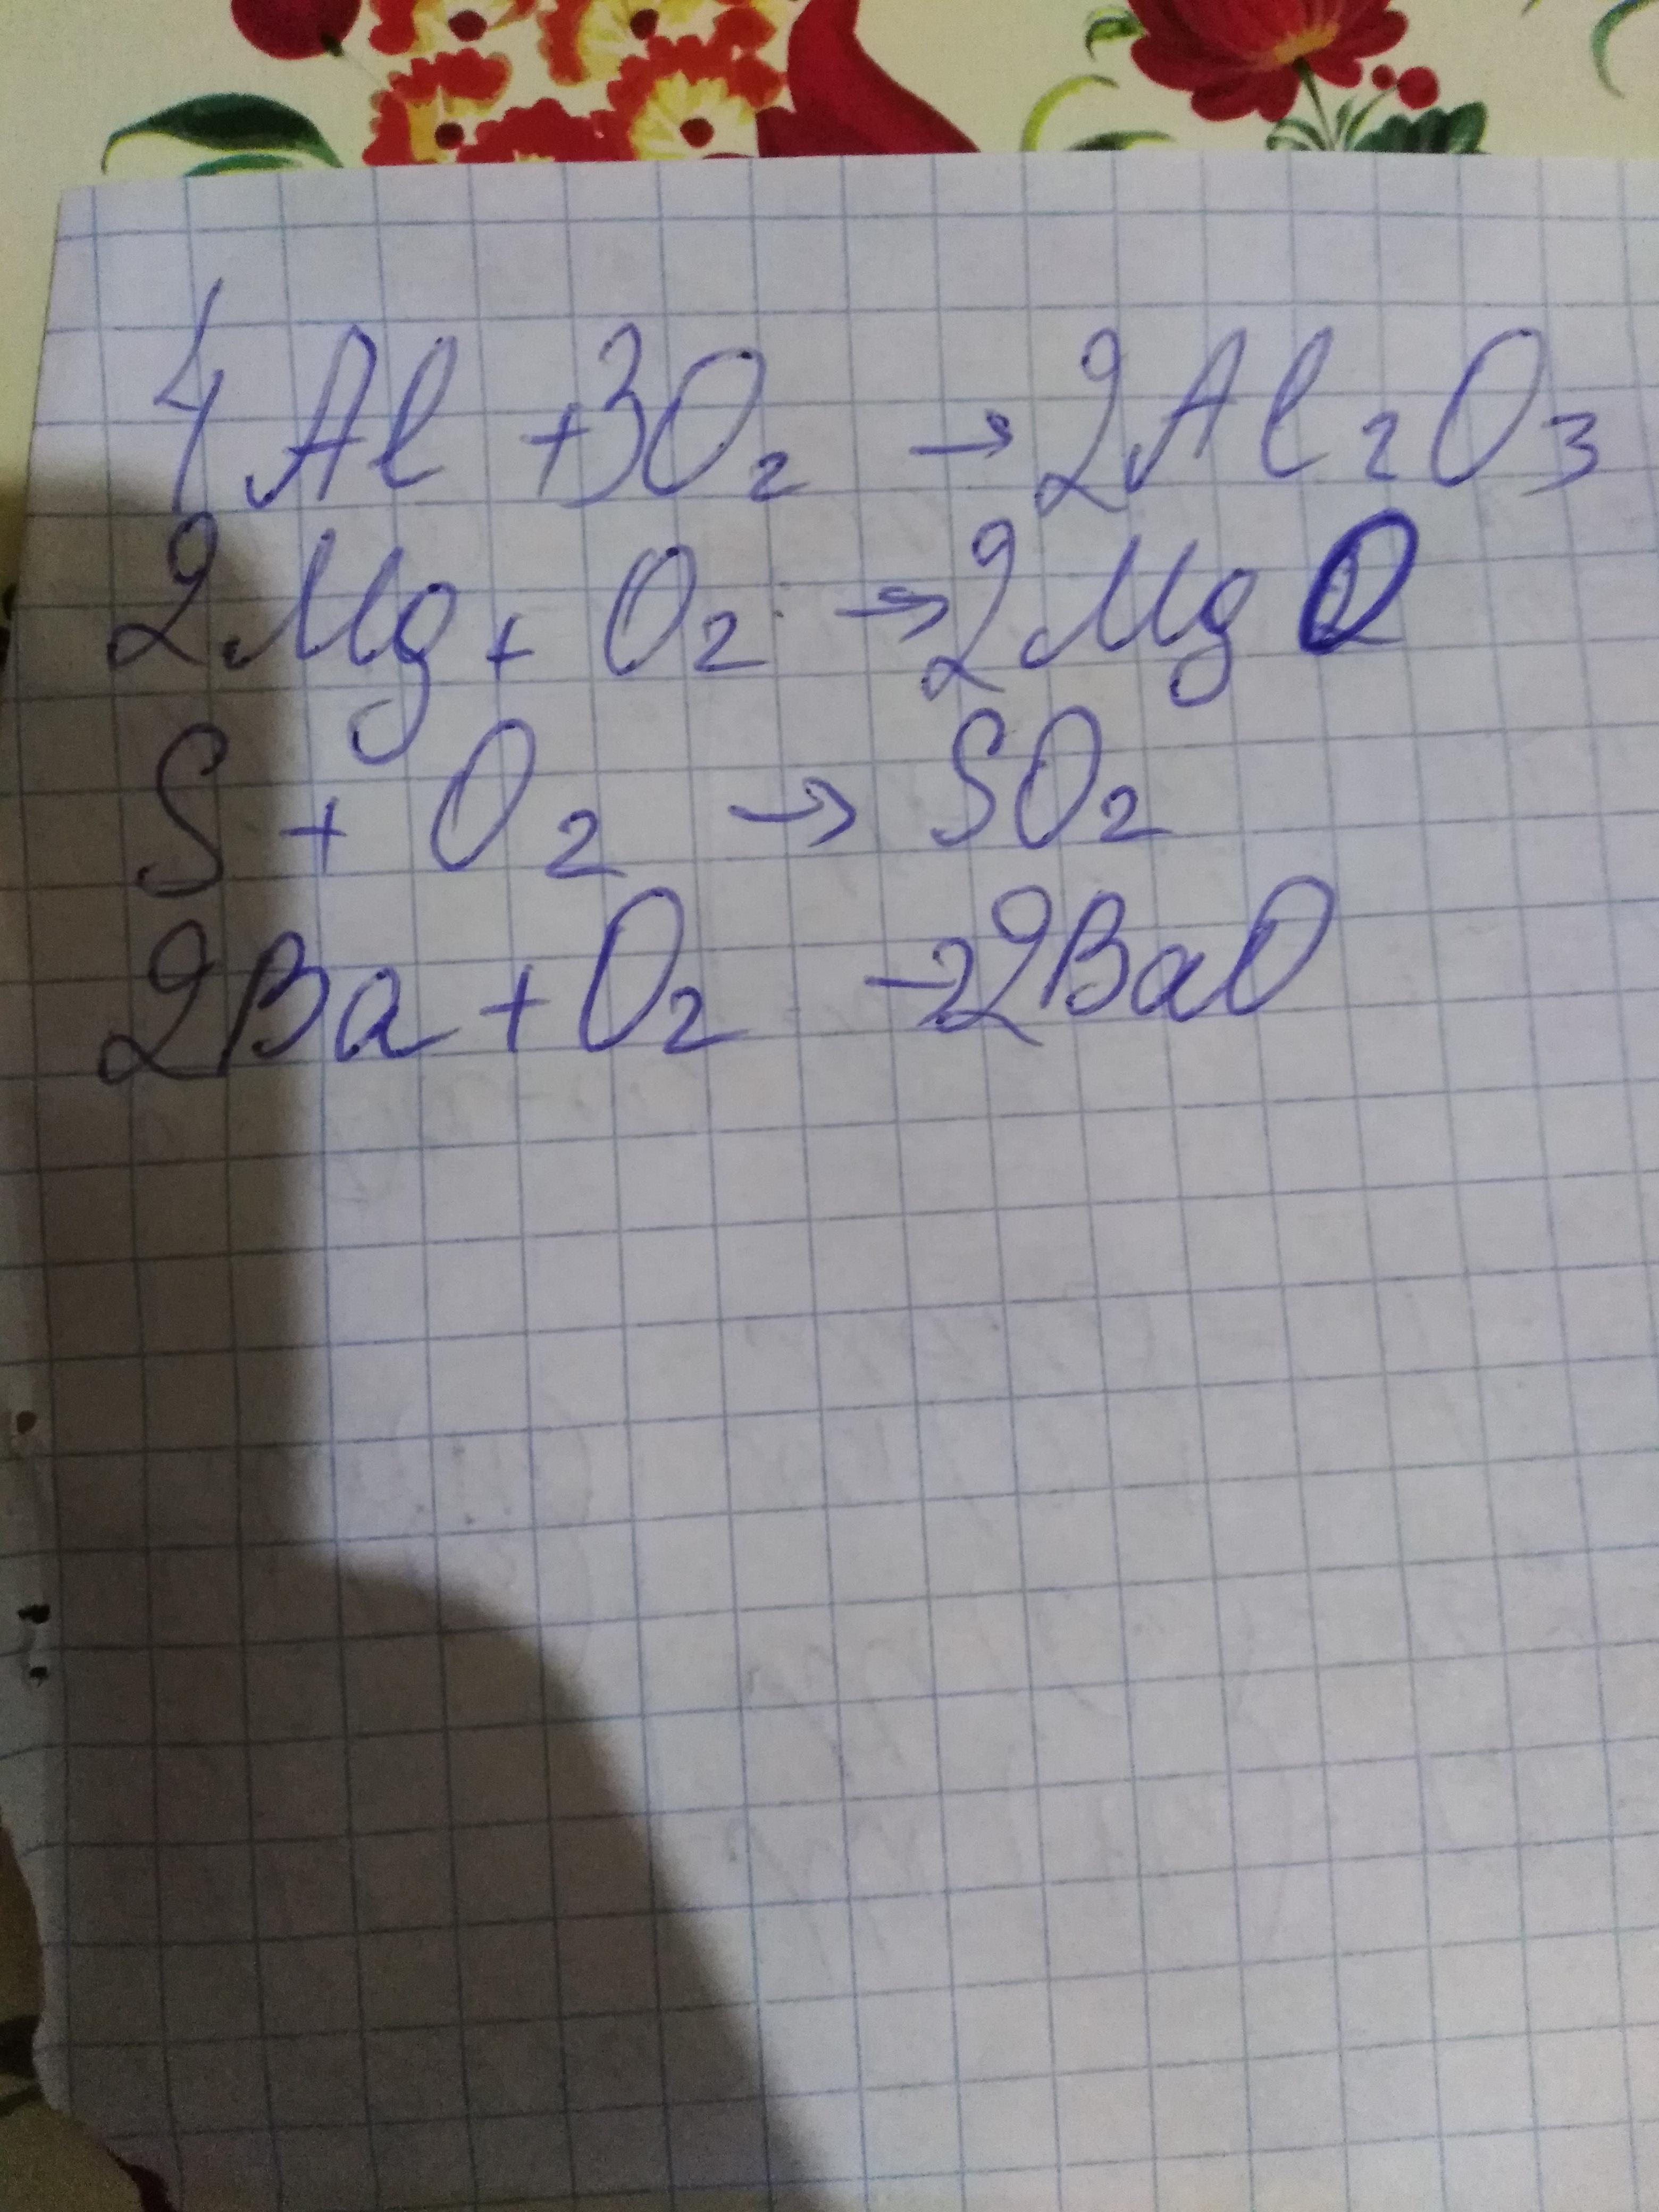 4Al + 3O₂ → 2Al₂O₃
2Mg + O₂ → 2MgO
S + O₂ → SO₂
2Ba + O₂ → 2BaO